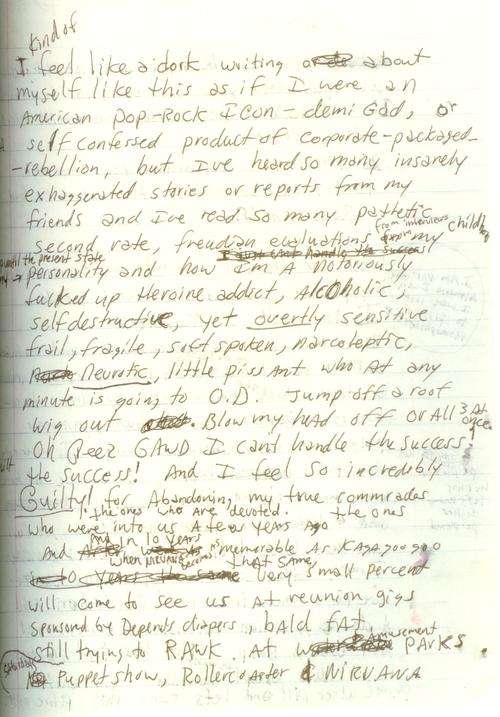 kind of
I feel like a dork writing about
myself like this as if I were an
American pop-Rock Icon-demi God, or
self confessed product of corporate-packaged-
-rebellion, but I've heard so many insanely
exhaggerated stories or reports from my
friends and I've read so many pathetic
from interviews
second rate, freudian evaluations from my childhood
until the present state
personality and how I'm A notoriously
fucked up Heroine addict, Alcoholic,
self destructive, yet overtly sensitive
frail, fragile, soft spoken, narcoleptic,
Neurotic, little piss Ant who At any
minute is going to O.D. Jump off a roof
wig out Blow my head off OR All 3 At once.
Oh Pleez GAWD I cant handle the success!
the success! And I feel so incredibly
Guilty! for Abandoning my true commrades
the ones who are devoted. the ones
who were into us A few years Ago
And in 10 years
when NIRVANA becomes as memorable As KAJAGOOGOO
that same very small percent
will come to see us At reunion gigs
sponsord by Depends diapers, bAld fAt
still trying to RAWK At Amusement pArks.
Saturdays
Puppet show, Rollercoaster & NIRVANA